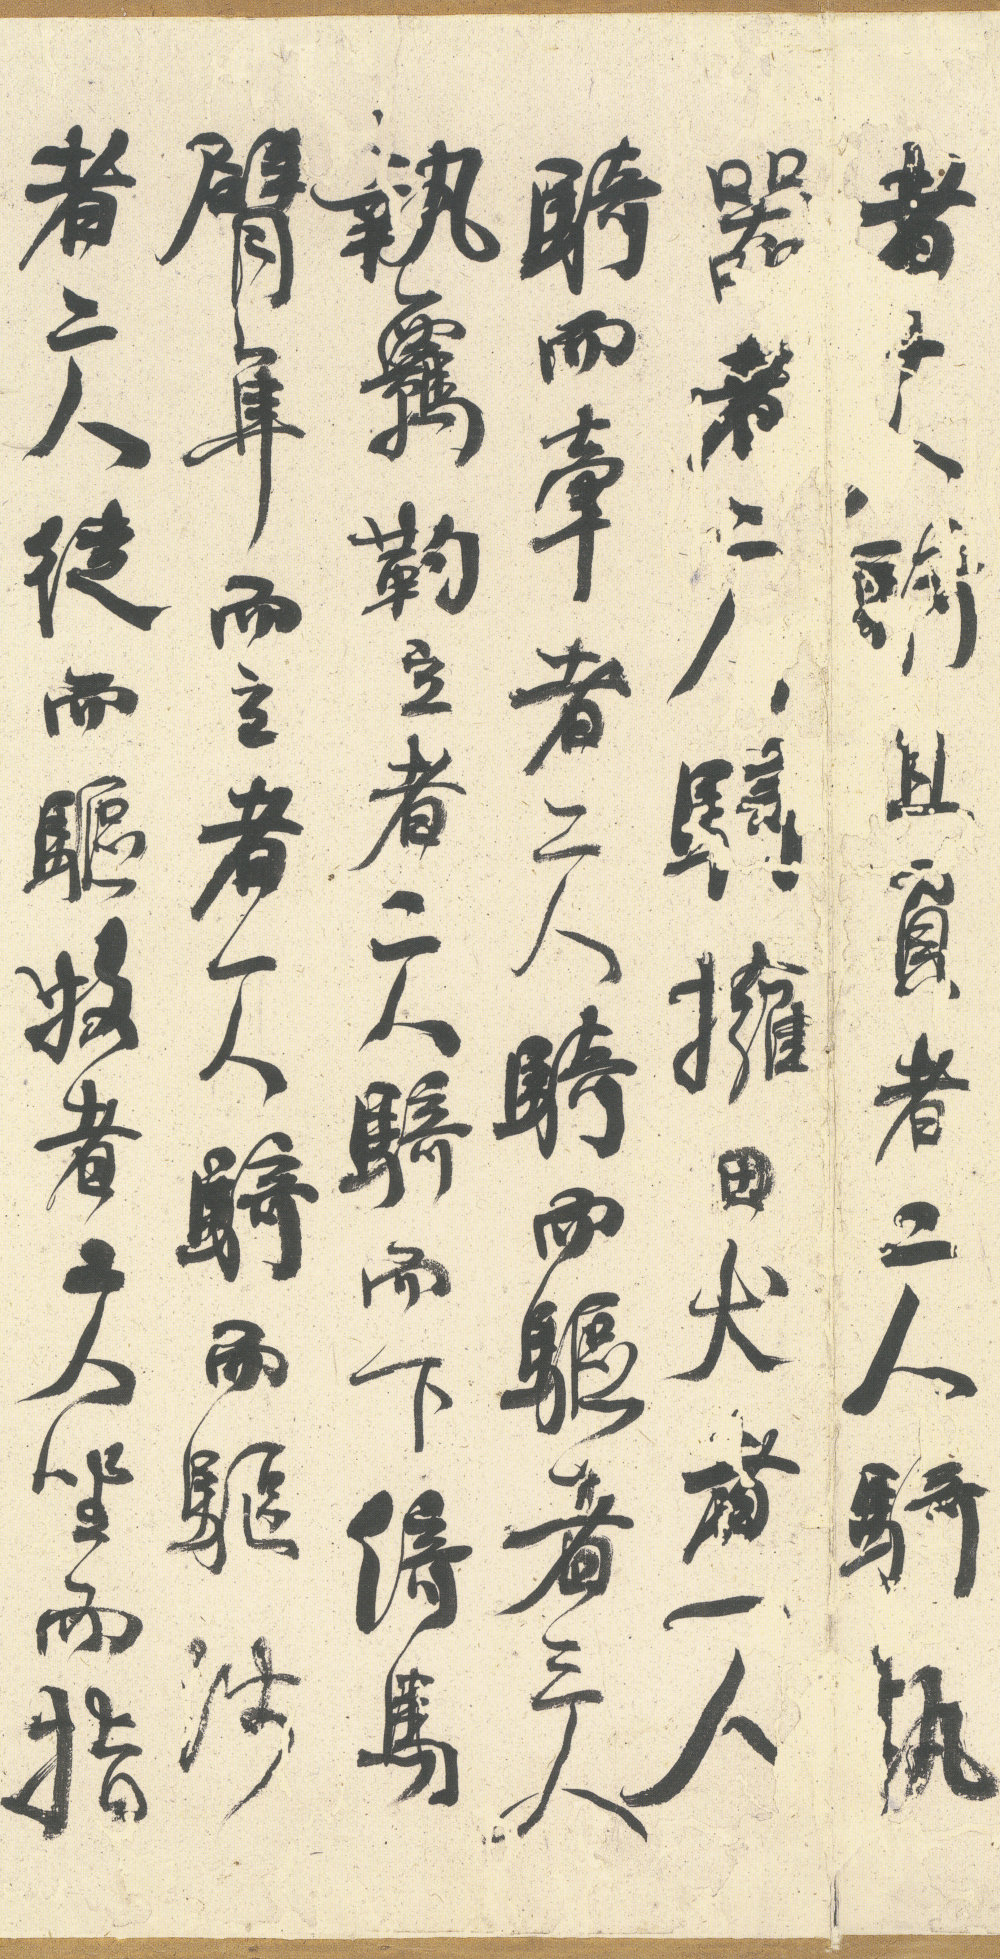 者十人騎且負者二人騎執
器者二人騎擁田犬者一人
騎而牽者二人騎而驅者三人
執羈靮立者二人騎而下倚馬
臂隼而立者一人騎而驅涉
者二人徒而驅牧者二人坐而指